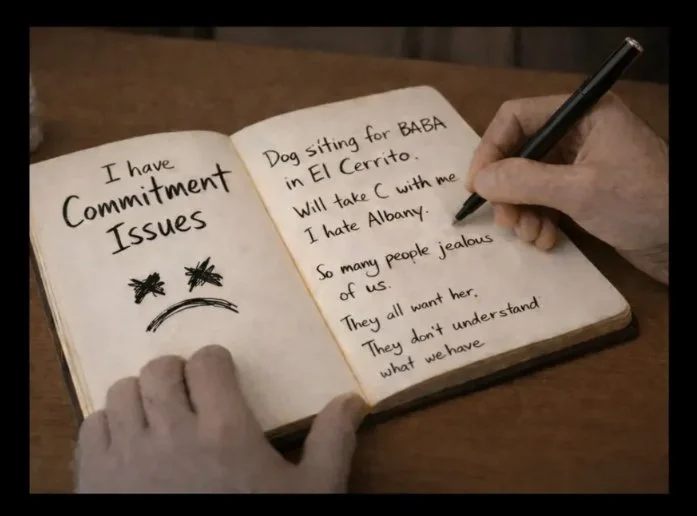 I have
Commitment
Issues
Dog siting for BABA
in El Cerrito.
Will take C with me
I hate Albany.
So many people jealous
of us.
They all want her.
They don't understand
what we have